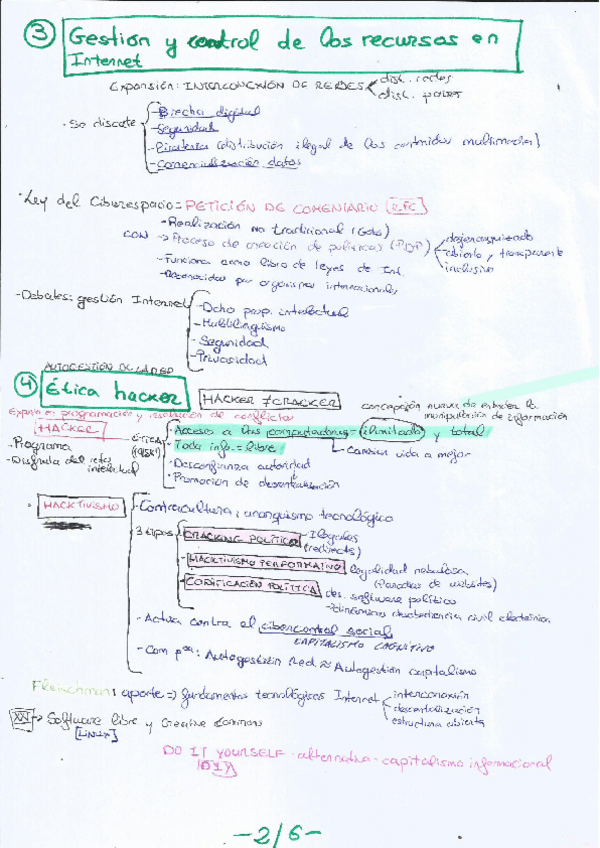 ③ Gestión y control de los recursos en
Internet
Expansión: INTERCONEXIÓN DE REDES
dist. redes
dist. países
· Se discute
- Brecha digital
- Seguridad
- Piratería (distribución ilegal de los contenidos multimedia)
- Comercialización datos
· Ley del Ciberespacio = PETICIÓN DE COMENTARIO (RFC)
- Realización no tradicional
CON → Proceso de creación de políticas (PDP)
desjerarquizado
abierto y transparente
inclusivo
- Funciona como libro de leyes de Int.
- Reconocidas por organismos internacionales
- Debates: gestión Internet
- Dcho prop. intelectual
- Multilingüismo
- Seguridad
- Privacidad
AUTOGESTIÓN DE LA RED
④ Ética hacker
HACKER ≠ CRACKER
concepción nueva de entender la
manipulación de información
Experto en programación y resolución de conflictos
HACKER
- Programa
- Disfruta del reto
intelectual
ÉTICA
- Acceso a las computadoras = ilimitado y total
- Toda info. = libre
Cambiar vida a mejor
- Desconfianza autoridad
- Promoción de descentralización
· HACKTIVISMO
- Contracultura: anarquismo tecnológico
3 tipos
- CRACKING POLÍTICO
- Ilegales
(redirects)
- HACKTIVISMO PERFORMATIVO
legalidad nebulosa
(Parodias de websites)
- CODIFICACIÓN POLÍTICA
des. software político
dinámicas desobediencia civil electrónica
- Activa contra el cibercontrol social
CAPITALISMO COGNITIVO
- Autogestión Red ≈ Autogestión capitalismo
aporte => fundamentos tecnológicos Internet
interconexión
descentralización
estructura abierta
→ Software libre y Creative Commons
[LINUX]
DO IT YOURSELF · alternativa · capitalismo informacional
(DIY)
-2/6-